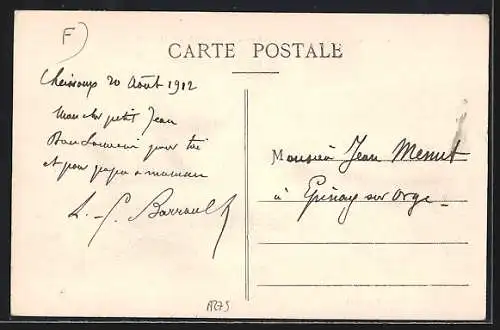 F)
CARTE POSTALE
20 Août 1912
Mon cher petit Jean
Bon Souvenir pour toi
et pour papa & maman
L. Barrault
Monsieur Jean Menut
à Epinay sur Orge